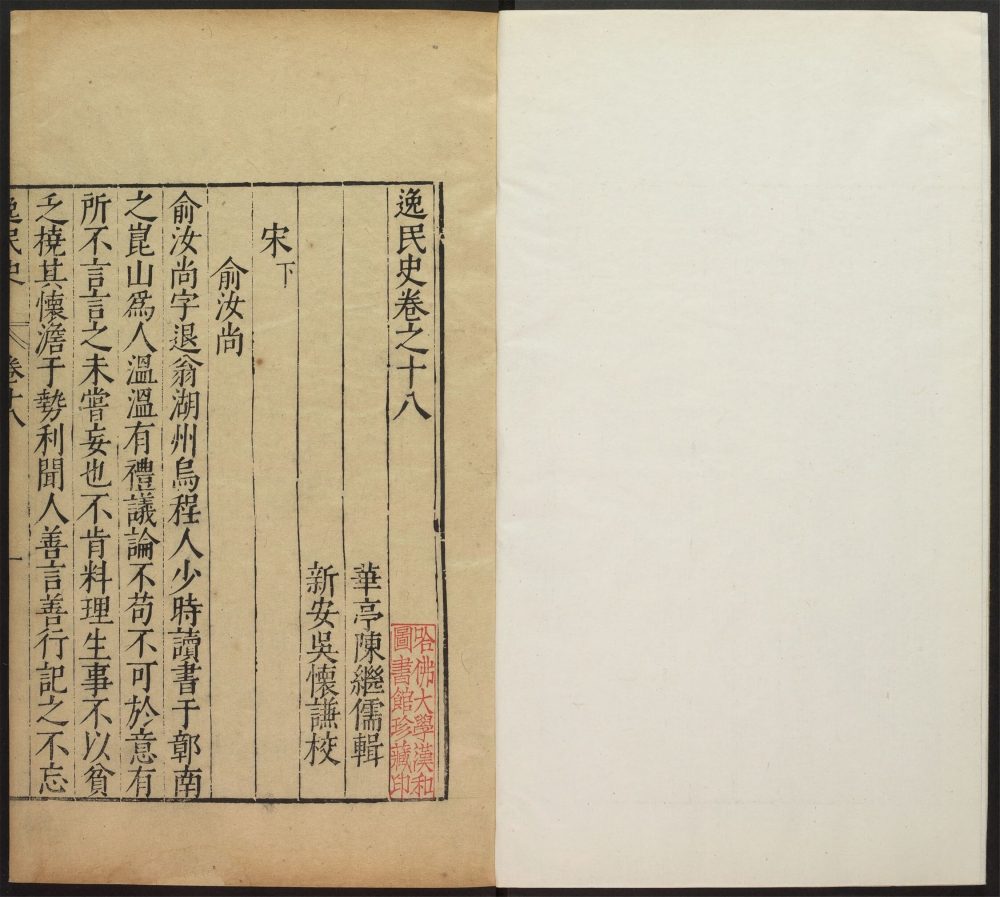 逸民史卷之十八
華亭陳繼儒輯
新安吳懷謙校
宋下
俞汝尚
俞汝尚字退翁湖州烏程人少時讀書于鄣南
之崑山爲人溫溫有禮議論不苟不可於意有
所不言言之未嘗妄也不肯料理生事不以貧
乏橈其懷澹于勢利聞人善言善行記之不忘
逸民史 卷十八 一
哈佛大學漢和
圖書館珍藏印